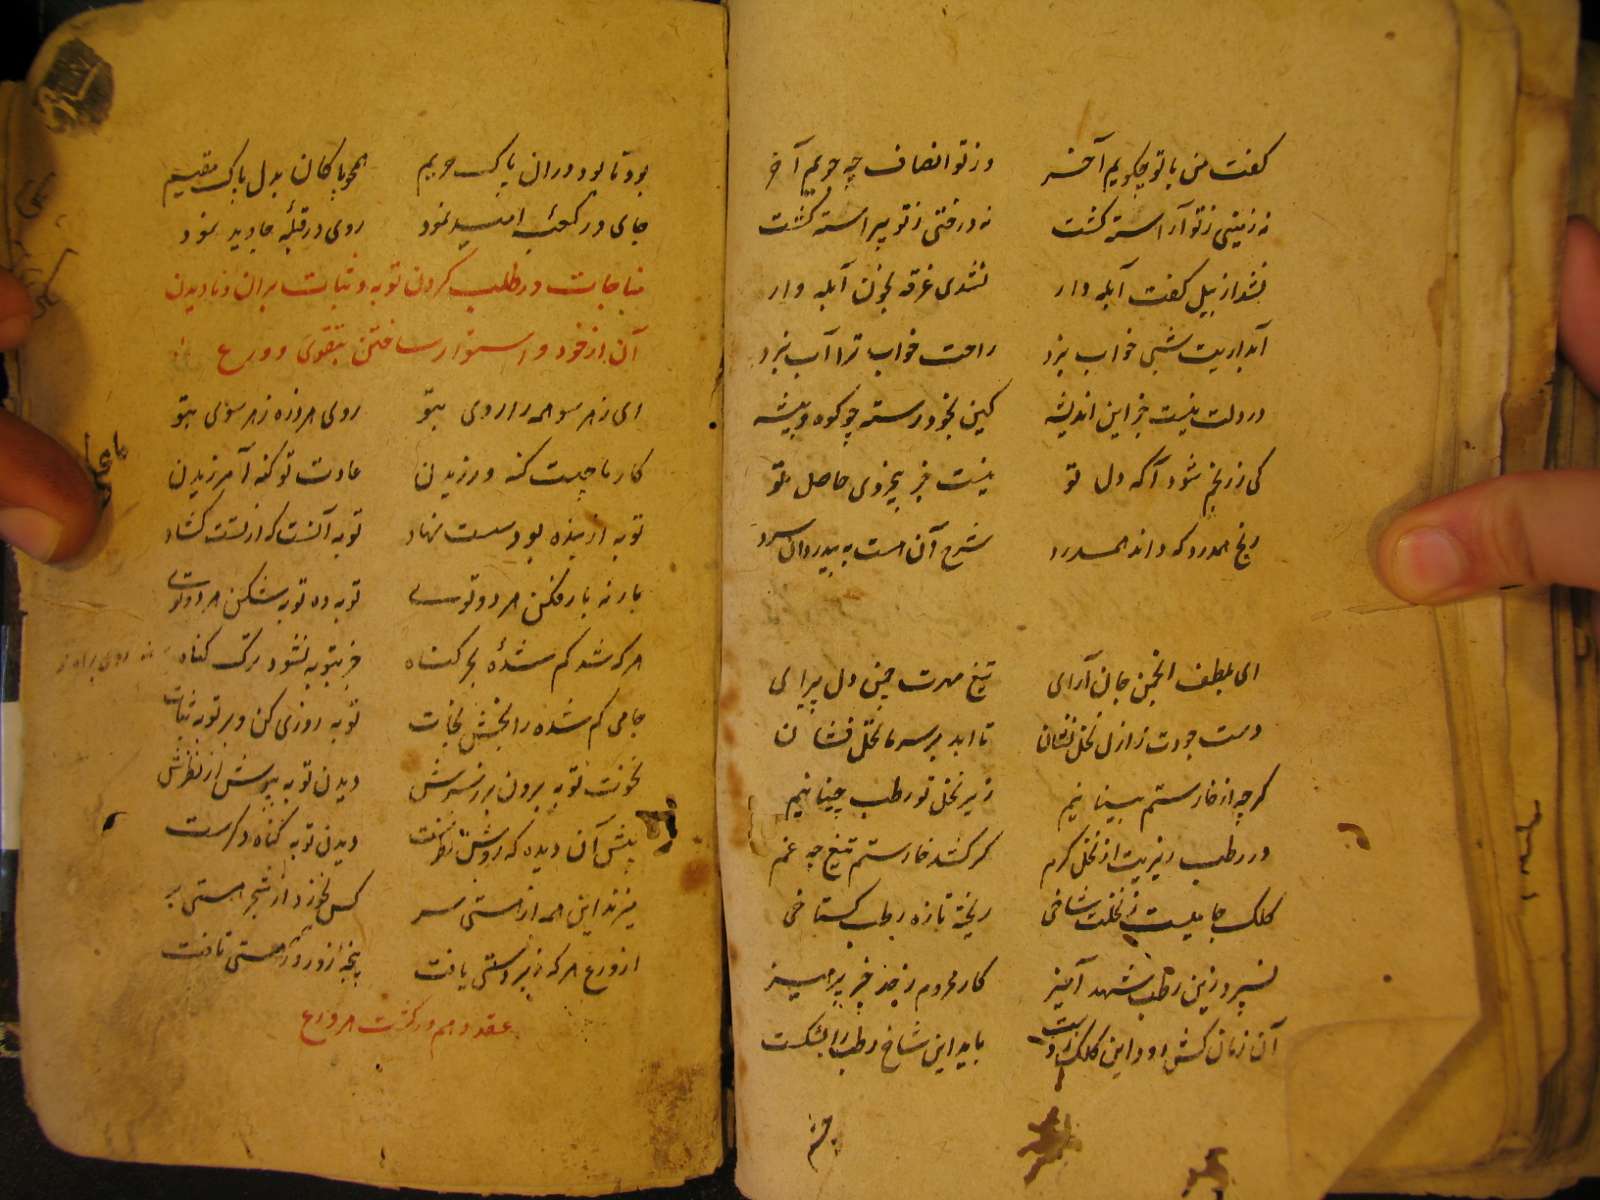 گفت من با تو چگویم آخر    وز تو انصاف چه جویم آخر
نه زمینی ز تو آراسته گشت    نه درختی ز تو پیراسته گشت
نشد از بیل کفت آبله دار    نشدی غرقه بخون آبله وار
آبداریت شبی خواب نبرد    راحت خواب ترا آب نبرد
در دلت نیست جز این اندیشه    کین بخود رسته چو کوه و بیشه
کی ز رنجم شود آگه دل تو    نیست جز بیخردی حاصل تو
رنج همدرد که داند همدرد    شرح آن هست به بیدردان سرد
ای بلطف انجمن جان آرای    تیغ مهرت چمن دل پیرای
دست جودت ز ازل نخل نشان    تا ابد بر سر ما نخل فشان
گرچه از خار ستم بینانیم    زیر نخل تو رطب چینانیم
در رطب ریزیت از نخل کرم    گر کشد خار ستم تیغ چه غم
کلک جامیست ز نخلت شاخی    ریخته تازه رطب گستاخی
نسپرد زین رطب شهد آمیز    کار محروم ز جز پرهیز
آن زمان کش رود این کلک ز دست    باید این شاخ رطب را بشکست
بود تا بود در آن پاک حریم    همچو پاکان بدل پاک مقیم
جای در کعبه امید نمود    روی در قبله جاوید نمود
مناجات در طلب کردن توبه و ثبات بران و نادیدن
آن از خود و استوار ساختن بتقوی و ورع
ای ز هر سو همه را روی بتو    روی هر ذره ز هر سوی بتو
کار ما چیست گنه ورزیدن    عادت تو گنه آمرزیدن
توبه از بنده بود سست نهاد    توبه آنست که از تست گشاد
بار نه بار فکن هر دو توئی    توبه ده توبه شکن هر دو توئی
هر که شد گم شده بحر گناه    جز بتوبه نشود ترک گناه
جامی گم شده را بخش نجات    توبه روزی کن و بر توبه ثبات
نخوت توبه برون بر ز سرش    دیدن توبه بپوش از نظرش
پیش آن دیده که روشن نظرست    دیدن توبه گناه دگرست
میزند این همه از هستی سر    کس نخورد از شجر هستی بر
از ورع هر که زبردستی یافت    پنجه زور ور هستی تافت
عقد دهم در کثرت ورع